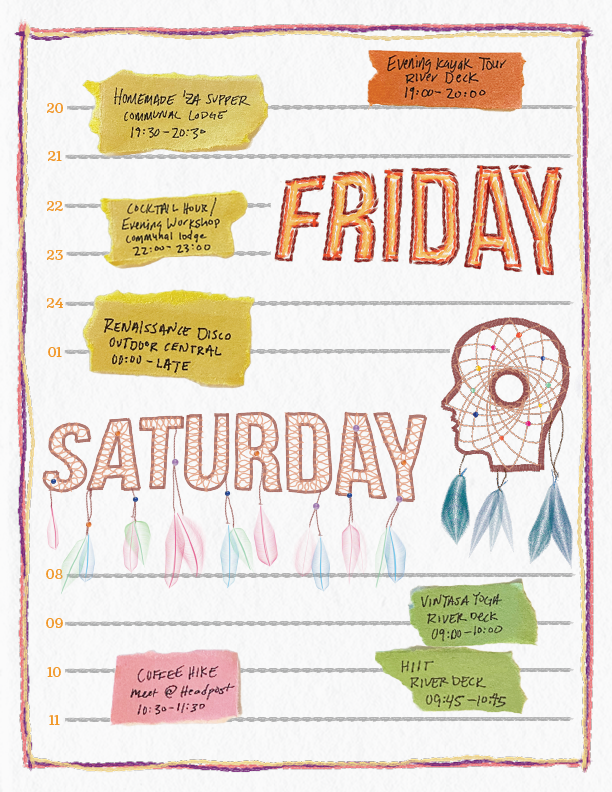 Evening Kayak Tour
River Deck
19:00-20:00
HOMEMADE 'ZA SUPPER
COMMUNAL LODGE
19:30-20:30
20
21
FRIDAY
22
COCKTAIL HOUR/
Evening Workshop
communal lodge
22:00-23:00
23
24
RENAISSANCE DISCO
OUTDOOR CENTRAL
00:00-LATE
01
SATURDAY
08
VINYASA YOGA
RIVER DECK
09:00-10:00
09
10
COFFEE HIKE
meet @ Headpost
10:30-11:30
HIIT
RIVER DECK
09:45-10:45
11